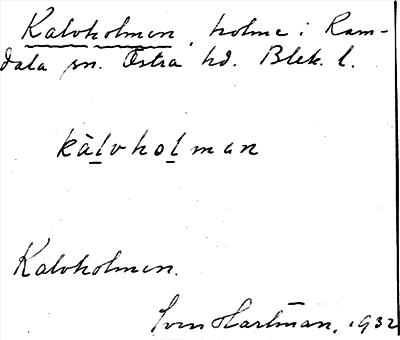 Kalvholmen, holme i Ram-
dala sn. Östra hd. Blek. l.
kàlvholman
Kalvholmen.
Sven Hartman, 1932